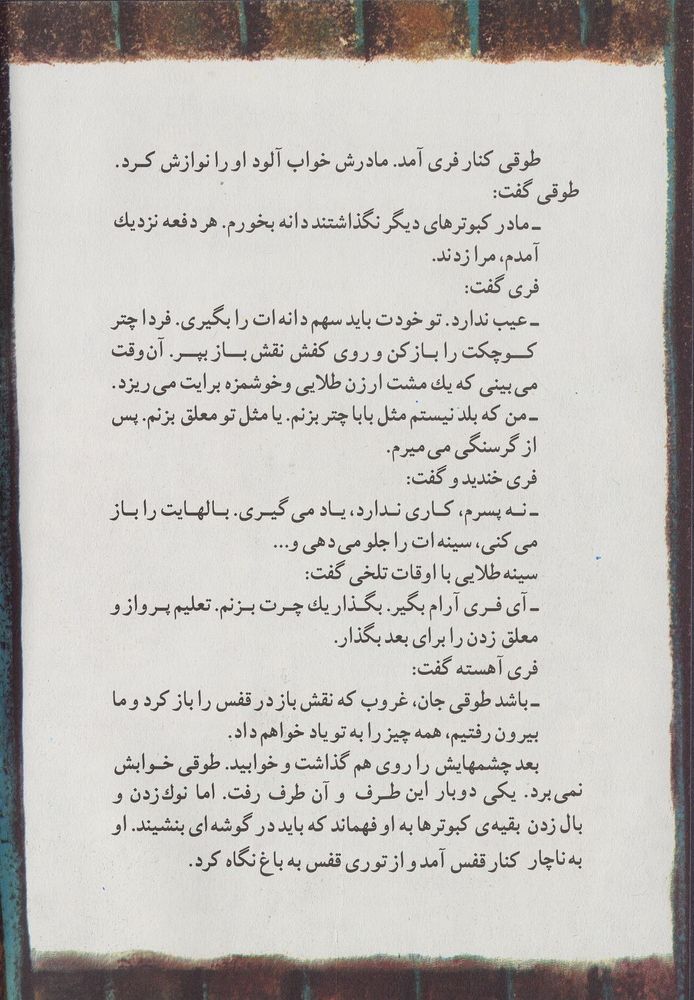 طوقی کنار فری آمد. مادرش خواب آلود او را نوازش کـرد.
طوقی گفت:
ـ مادر کبوترهای دیگر نگذاشتند دانه بخورم. هر دفعه نزدیك
آمدم، مرا زدند.
فری گفت:
ـ عیب ندارد. تو خودت باید سهم دانه‌ات را بگیری. فردا چتر
کـوچکت را بـاز کن و روی کفش نقش بـاز بپـر. آن وقت
می بینی که یك مشت ارزن طلایی وخوشمزه برایت می ریزد.
ـ من که بلد نیستم مثل بابا چتر بزنم. یا مثل تو معلق بزنم. پس
از گرسنگی می میرم.
فری خندید و گفت:
ـ نـه پسرم، کـاری نـدارد، یـاد می گیـری. بـالهـایت را بـاز
می کنی، سینه‌ات را جلو می‌دهی و...
سینه طلایی با اوقات تلخی گفت:
ـ آی فـری آرام بگیر. بگـذار یك چـرت بـزنم. تعلیم پـرواز و
معلق زدن را برای بعد بگذار.
فری آهسته گفت:
ـ باشد طوقی جان، غروب که نقش باز در قفس را باز کرد و ما
بیرون رفتیم، همه چیز را به تو یاد خواهم داد.
بعد چشمهایش را روی هم گذاشت و خوابید. طوقی خـوابش
نمی برد. یکی دوبار این طـرف و آن طرف رفت. اما نوك‌زدن و
بال زدن بقیه‌ی کبوترها به او فهماند که باید در گوشه‌ای بنشیند. او
به ناچار کنار قفس آمد و از توری قفس به باغ نگاه کرد.